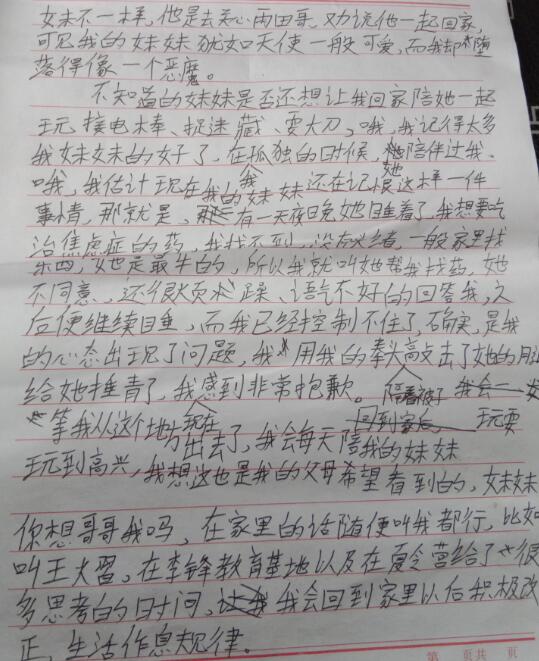 妹不一样，他是去关心两田哥，劝说他一起回家，
可见我的妹妹犹如天使一般可爱，而我却堕
落得像一个恶魔。
不知道的妹妹是否还想让我回家陪她一起
玩接电棒、捉迷藏、耍大刀，哦，我记得太多
我妹妹的好了，在孤独的时候，她陪伴过我。
哦，我估计现在我的妹妹还在记恨我这样一件
事情，那就是、有一天夜晚她睡着了，我想要吃
治焦虑症的药，我找不到，没有必绪，一般家里找
东西，她也是最牛的，所以我就叫她帮我找药，她
不同意，还很烦躁、语气不好的回答我，之
后便继续睡，而我已经控制不住了，确实，是我
的心态出现了问题，我用我的拳头敲击了她的脚
给她捶青了，我感到非常抱歉。隔着被子
等我从这个地方出去了，现在我会每天陪我的妹妹回到家后玩耍
玩到高兴，我想这也是我的父母希望看到的，妹妹
你想哥哥我吗，在家里的话随便叫我都行，比如
叫王大習，在李锋教育基地以及在夏令营给了很
多思考的时间，我会回到家里以后积极改
正，生活作息规律。
第 页共 页